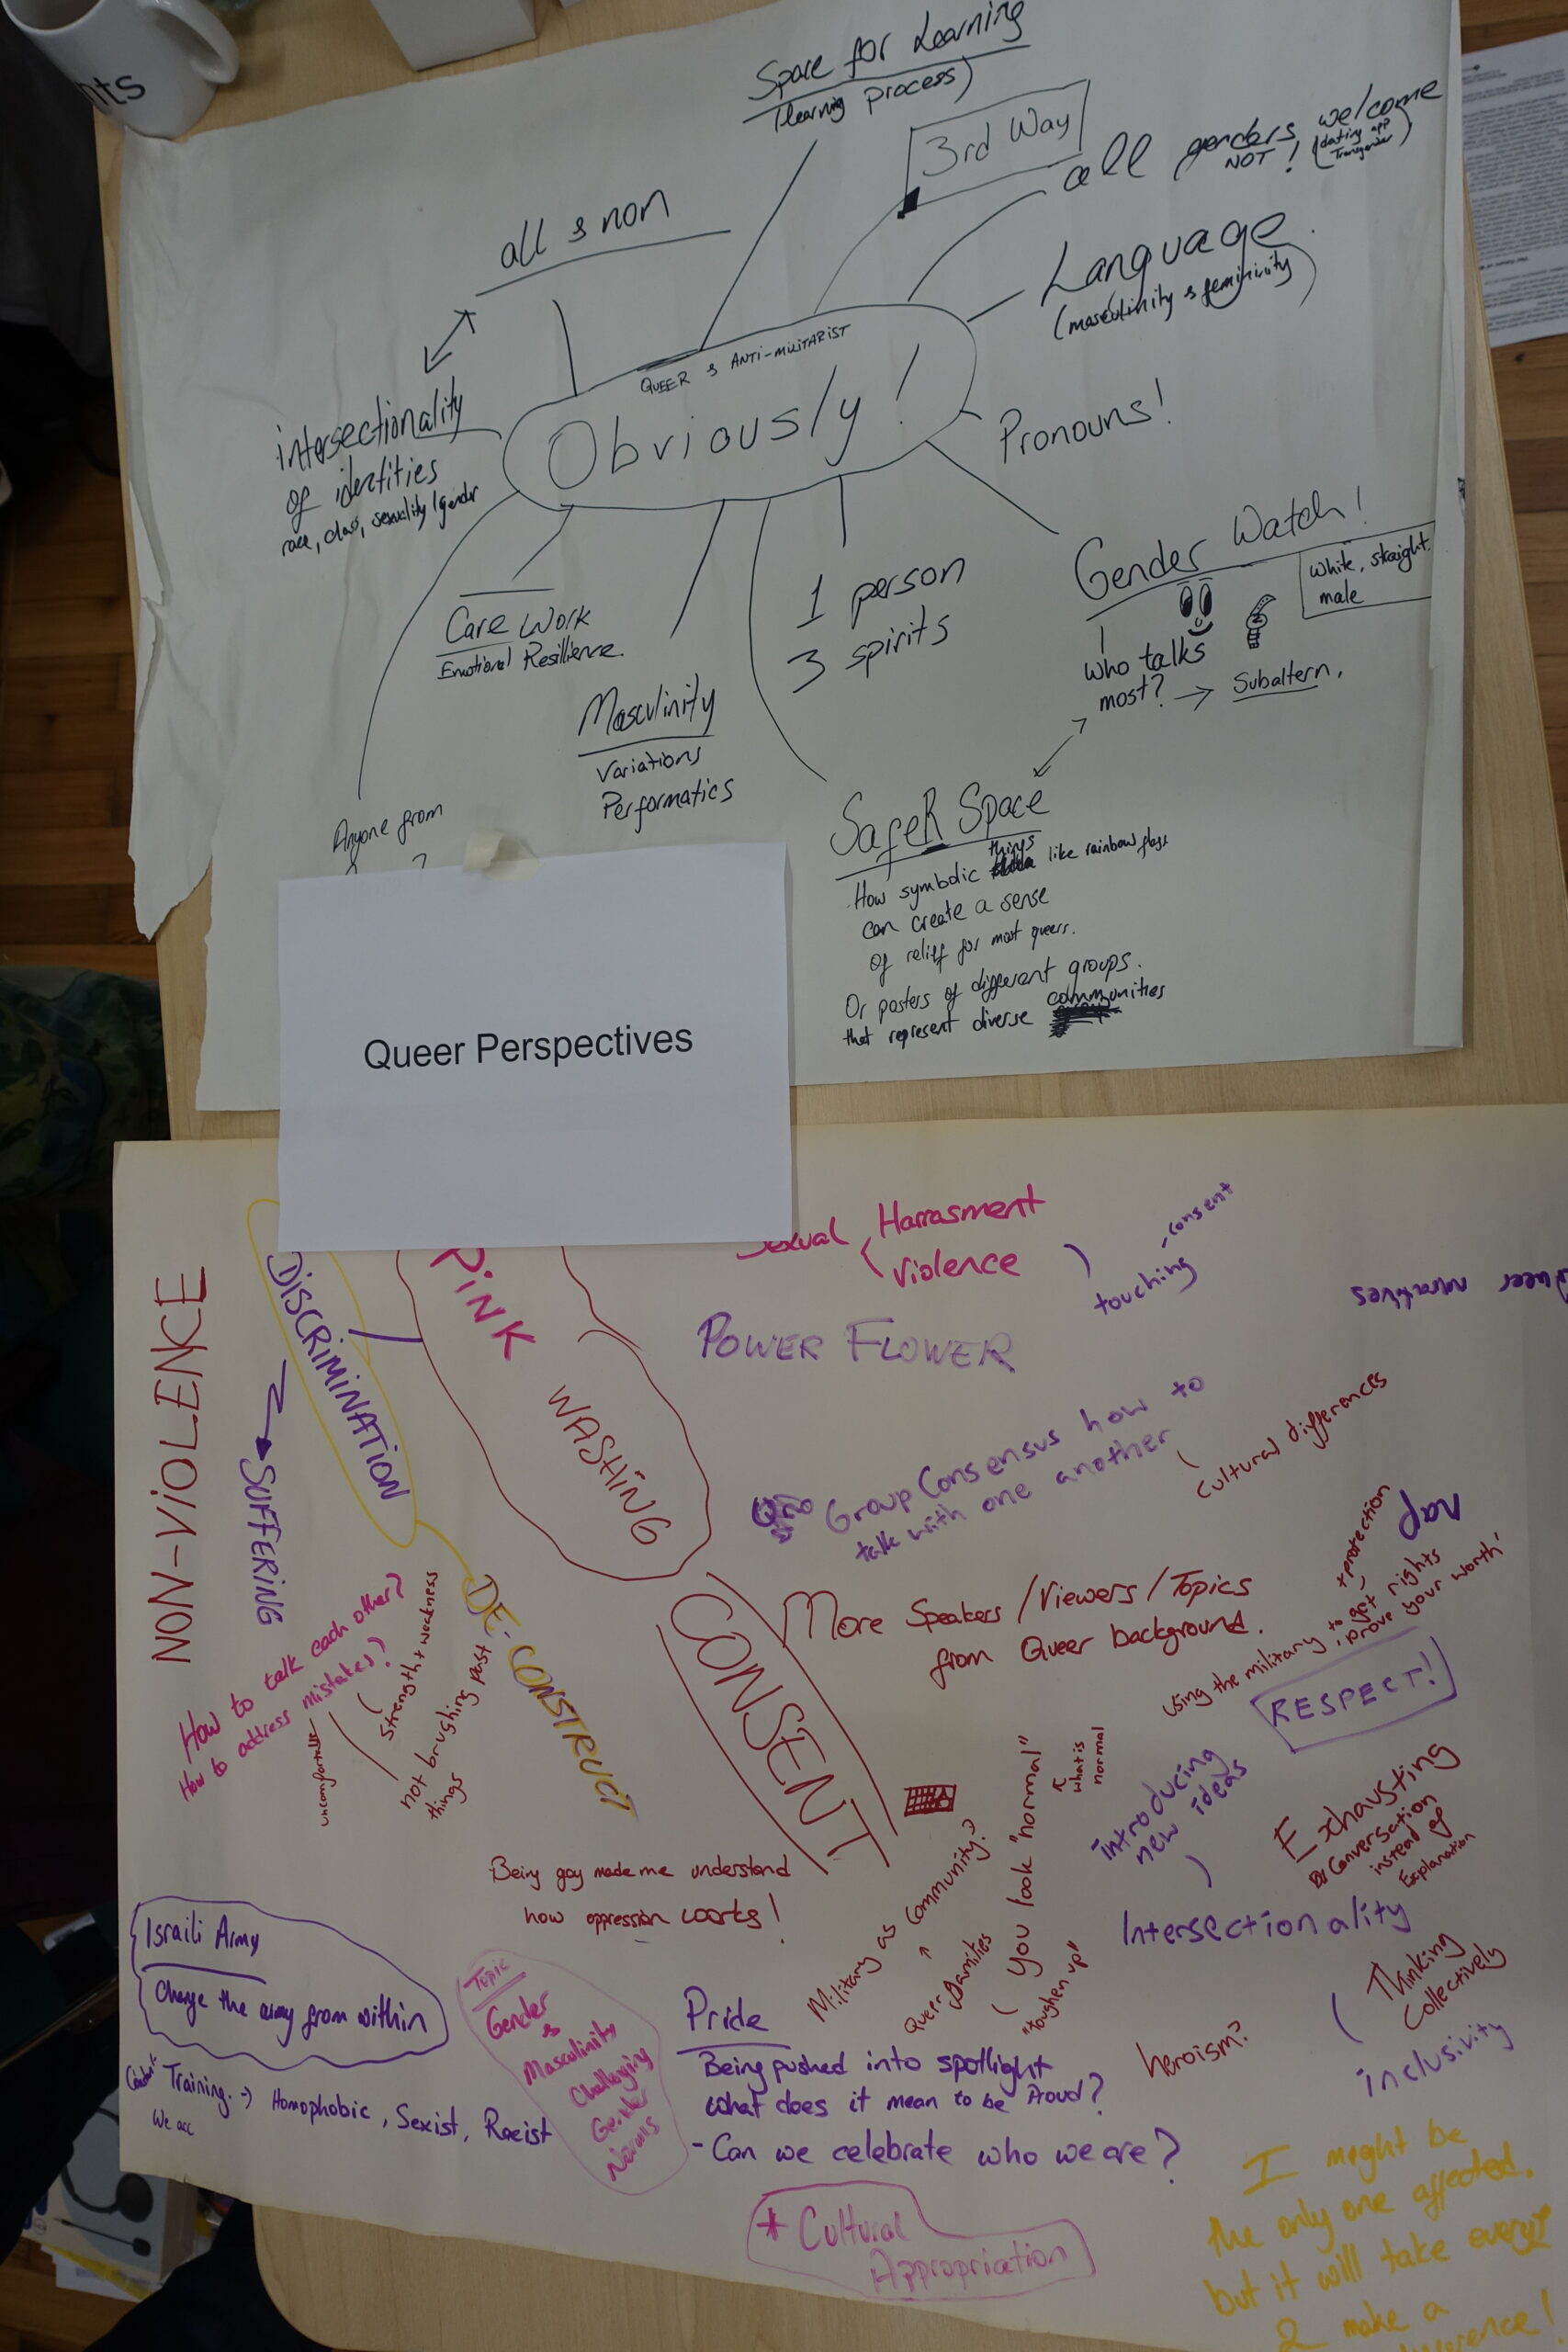 hts
Space for Learning
(learning process)
3rd Way
all genders welcome
NOT! (dating app
Transgender)
all & non
Language
(masculinity & femininity)
QUEER & ANTI-MILITARIST
Obviously!
Pronouns!
intersectionality
of identities
race, class, sexuality/gender
Gender Watch!
White, straight
male
who talks
most? → Subaltern,
1 person
3 spirits
Care Work
Emotional Resilience.
Masculinity
Variations
Performatics
Anyone from
SafeR Space
How symbolic things like rainbow flags
can create a sense
of relief for most queers.
Or posters of different groups.
that represent diverse communities
Queer Perspectives
NON-VIOLENCE
DISCRIMINATION
SUFFERING
PINK
WASHING
Sexual Harrasment
violence
touching
- consent
Queer narratives
POWER FLOWER
Group Consensus how to
talk with one another
Cultural differences
DE-CONSTRUCT
CONSENT
More Speakers/Viewers/Topics
from Queer background.
+ protection
using the military to get rights
'prove your worth'
RESPECT!
How to talk each other?
How to address mistakes?
uncomfortable
strength + weakness
not brushing past
things
Being gay made me understand
how oppression works!
Military as community?
↑
Queer families
You look "normal"
what is
normal
"toughen up"
introducing
new ideas
Exhausting
conversation
instead of
Explanation
Intersectionality
Thinking
Collectively
inclusivity
heroism?
Israili Army
Change the army from within
Training. → Homophobic, Sexist, Racist
We are
Topic
Gender
&
Masculinity
Challenging
Gender
Norms
Pride
Being pushed into spotlight
what does it mean to be Proud?
- Can we celebrate who we are?
* Cultural
Appropriation
I meght be
the only one affected,
but it will take every1
2 make a